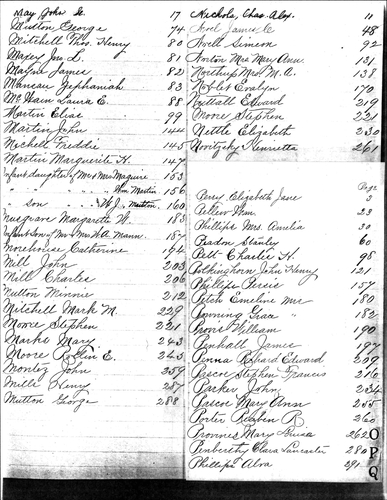 May John G. 17
Mutton George 74
Mitchell Thos. Henry 80
Maxey Jno L. 81
Mayne James 82
Manuau Zephaniah 83
McKain Laura E. 88
Martin Elias 99
Martin John 144
Michell Freddie 145
Martin Marguerite H. 147
Infant daughter of Mr & Mrs Maguire 153
" " " " Wm Martin 156
" son " W. J. Mutton 160
Musgrave Margareth W. 183
Infant Son of Mr & Mrs W. A. Mann 187
Morehouse Catherine 194
Mill John 203
Mill Charles 206
Mutton Minnie 212
Mitchell Mark M. 229
Moore Stephen 221
Marks Mary 243
Moore E. 245
Montez John 259
Mills Henry 287
Mutton George 288
Nichols, Chas. Alex. 11
Noel James C 48
Noell Simeon 92
Norton Mrs Mary Ann 131
Northup Mrs M. A. 138
Noble Evalyn 170
Nuttall Edward 219
Moore Stephen 221
Nattle Elizabeth 230
Novitzky Henrietta 261
Page
Perry Elizabeth Jane 3
Pellew Wm. 23
Phillips Mrs. Amelia 30
Peadon Stanley 60
Pett Charlie H. 98
Polkinghorn John Henry 121
Phillips Persis 157
Petch Emeline Mrs 180
Ponning Grace " 182
Provis William 190
Penhall James 197
Penna Richard Edward 209
Pascoe Stephen Francis 216
Parker John 234
Pascoe Mary Ann 255
Porter Reuben R. 260
Provines Mary 262 O
Penberthy Clara Lancaster 280 P
Phillips Alva 291 Q